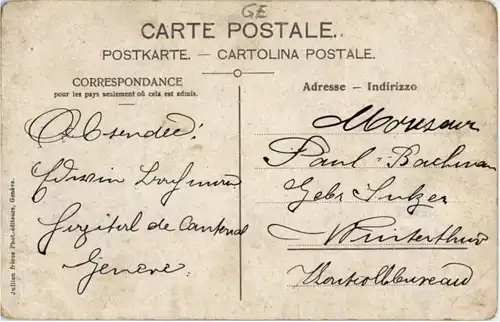 GE
CARTE POSTALE.
POSTKARTE. — CARTOLINA POSTALE.
CORRESPONDANCE
pour les pays seulement où cela est admis.
Absender:
Edwin
de Cantonal
Geneve.
Adresse — Indirizzo
Monsieur
Paul Bachman
Gebr Sulzer
Winterthur
Kontrollbureau
Jullien frères Phot.-éditeurs, Genève.